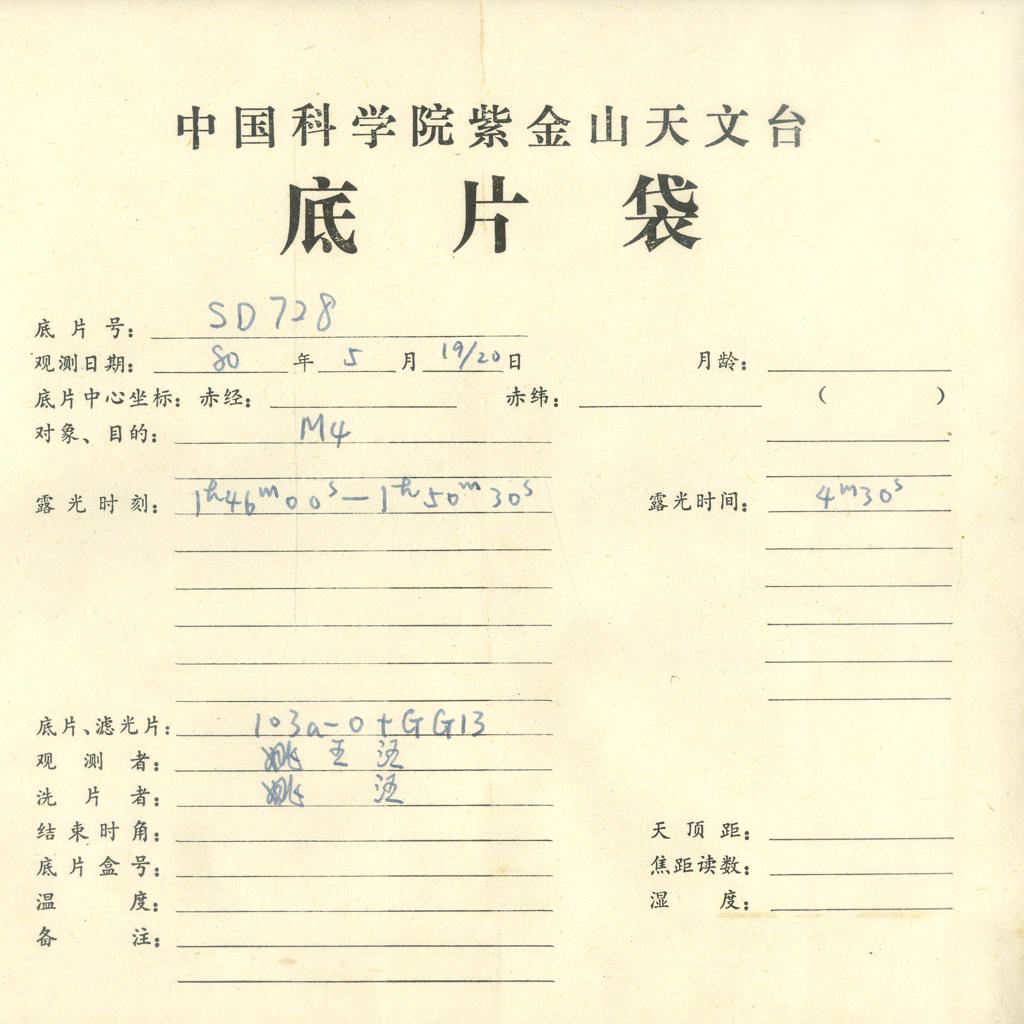 中国科学院紫金山天文台
底片袋
底片号： SD728
观测日期： 80 年 5 月 19/20 日 月龄：
底片中心坐标：赤经： 赤纬： （ ）
对象、目的： M4
露光时刻： 1h46m00s—1h50m30s 露光时间： 4m30s
底片、滤光片： 103a-O+GG13
观测者： 姚 王 汪
洗片者： 姚 汪
结束时角： 天顶距：
底片盒号： 焦距读数：
温度： 湿度：
备注：